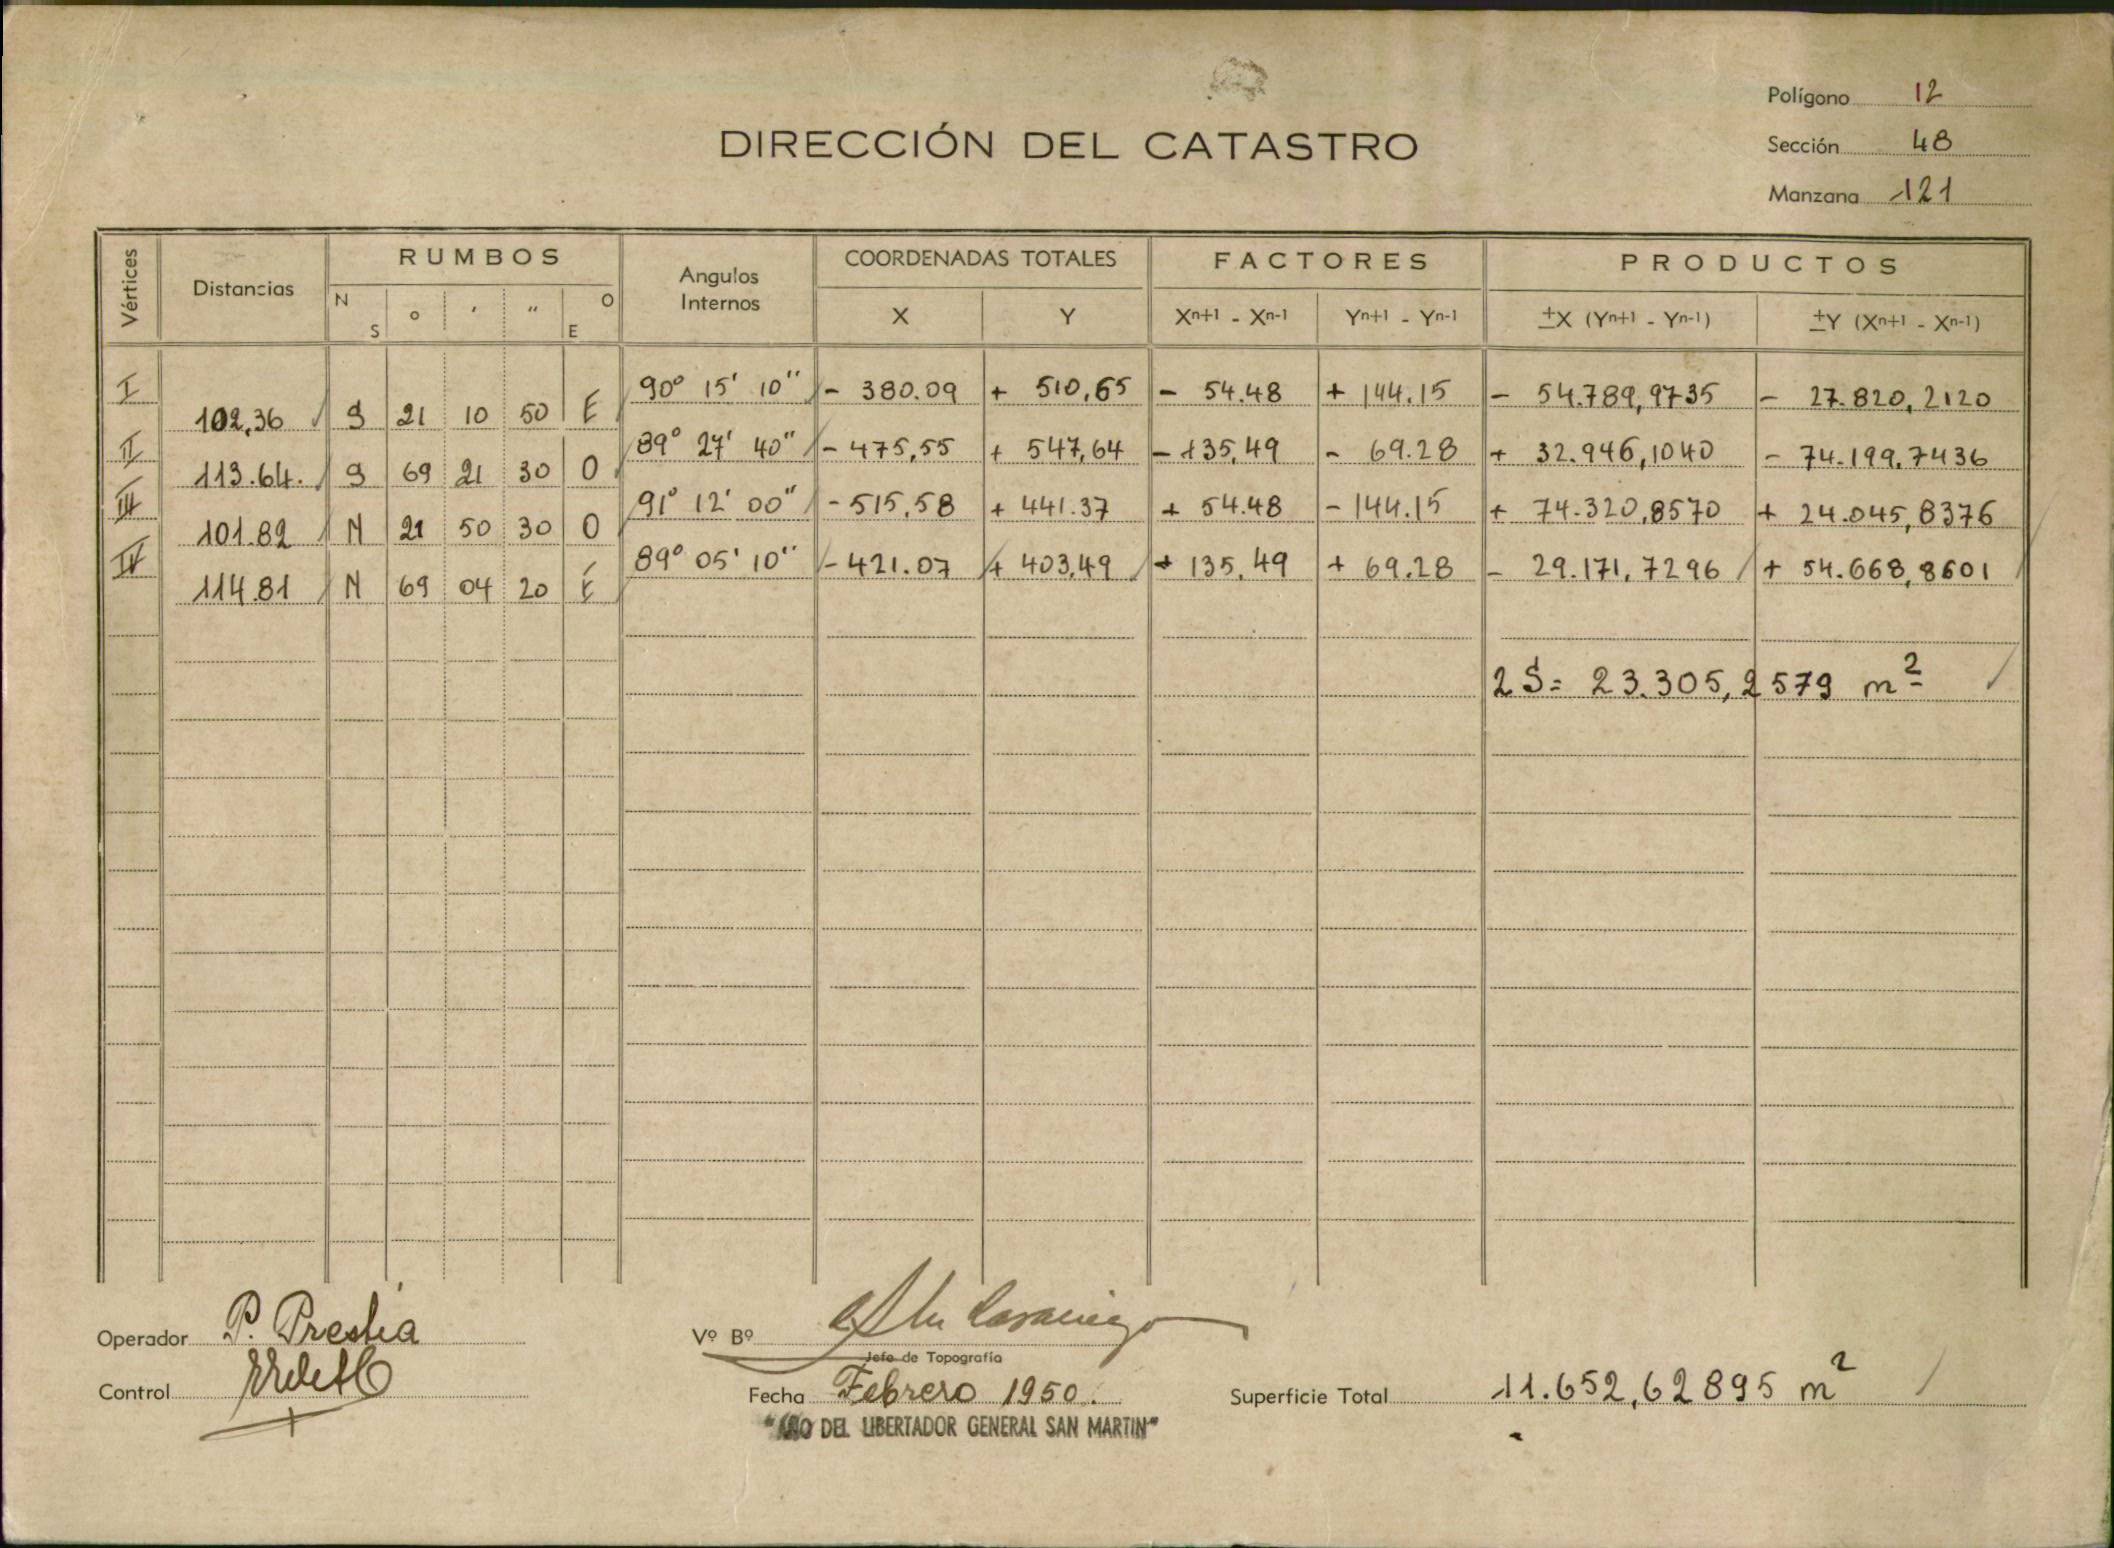 Polígono 12
DIRECCIÓN DEL CATASTRO
Sección 48
Manzana 121
Vértices Distancias RUMBOS Angulos Internos COORDENADAS TOTALES FACTORES PRODUCTOS
N S ° ' " O E X Y Xⁿ⁺¹ - Xⁿ⁻¹ Yⁿ⁺¹ - Yⁿ⁻¹ ±X (Yⁿ⁺¹ - Yⁿ⁻¹) ±Y (Xⁿ⁺¹ - Xⁿ⁻¹)
I 90° 15' 10" - 380.09 + 510,65 - 54.48 + 144.15 - 54.789,9735 - 27.820,2120
102,36 S 21 10 50 E
II 89° 27' 40" - 475,55 + 547,64 - 135,49 - 69.28 + 32.946,1040 - 74.199,7436
113.64. S 69 21 30 O
III 91° 12' 00" - 515,58 + 441.37 + 54.48 - 144.15 + 74.320,8570 + 24.045,8376
101.82 N 21 50 30 O
IV 89° 05' 10" - 421.07 + 403,49 + 135,49 + 69.28 - 29.171,7296 + 54.668,8601
114.81 N 69 04 20 E
2 S = 23.305,2579 m²
Operador P. Prestia
Vº Bº
Jefe de Topografía
Control
Fecha Febrero 1950.
Superficie Total 11.652,62895 m²
"AÑO DEL LIBERTADOR GENERAL SAN MARTIN"